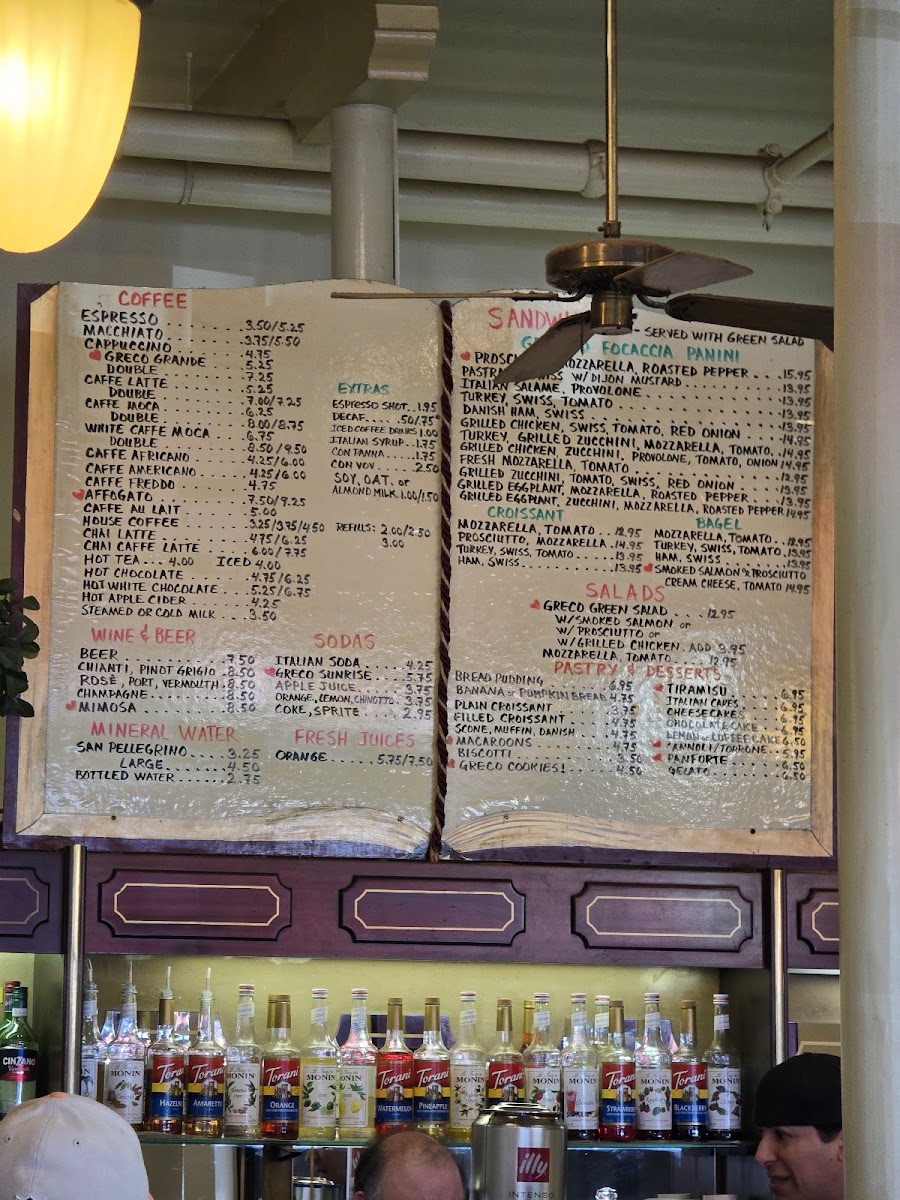 COFFEE
ESPRESSO . . . . . . . 3.50/5.25
MACCHIATO . . . . . . . 3.75/5.50
CAPPUCCINO . . . . . . . 4.75
GRECO GRANDE . . . . 5.25
DOUBLE . . . . . . . 7.25
CAFFE LATTE . . . . . . . 5.25
DOUBLE . . . . . . . 7.00/7.25
CAFFE MOCA . . . . . . . 6.25
DOUBLE . . . . . . . 8.00/8.75
WHITE CAFFE MOCA . . . . 6.75
DOUBLE . . . . . . . 8.50/9.50
CAFFE AFRICANO . . . . . 4.25/6.00
CAFFE AMERICANO . . . . 4.25/6.00
CAFFE FREDDO . . . . . . 4.75
AFFOGATO . . . . . . . 7.50/9.25
CAFFE AU LAIT . . . . . . 5.00
HOUSE COFFEE . . . . . 3.25/3.75/4.50
CHAI LATTE . . . . . . . 4.75/6.25
CHAI CAFFE LATTE . . . . 6.00/7.75
HOT TEA . . . 4.00 ICED 4.00
HOT CHOCOLATE . . . . . 4.75/6.25
HOT WHITE CHOCOLATE . . . 5.25/6.75
HOT APPLE CIDER . . . . 4.25
STEAMED OR COLD MILK . . . 3.50
EXTRAS
ESPRESSO SHOT . . 1.95
DECAF . . . . . .50/.75
ICED COFFEE DRINKS 1.00
ITALIAN SYRUP . . 1.75
CON PANNA . . . . 1.75
CON VOV . . . . . 2.50
SOY, OAT, or
ALMOND MILK 1.00/1.50
REFILLS: 2.00/2.50
3.00
WINE & BEER
BEER . . . . . . . . . . 7.50
CHIANTI, PINOT GRIGIO . 8.50
ROSÈ, PORT, VERMOUTH . 8.50
CHAMPAGNE . . . . . . . 8.50
MIMOSA . . . . . . . . 8.50
MINERAL WATER
SAN PELLEGRINO . . . . 3.25
LARGE . . . . . . 4.50
BOTTLED WATER . . . . . 2.75
SODAS
ITALIAN SODA . . . . . 4.25
GRECO SUNRISE . . . . . 5.75
APPLE JUICE . . . . . . 3.75
ORANGE, LEMON, CHINOTTO . 3.75
COKE, SPRITE . . . . . 2.95
FRESH JUICES
ORANGE . . . . . . 5.75/7.50
SERVED WITH GREEN SALAD
FOCACCIA PANINI
MOZZARELLA, ROASTED PEPPER . . . 15.95
W/ DIJON MUSTARD . . . . . . 13.95
ITALIAN SALAME, PROVOLONE . . . . . . . 13.95
TURKEY, SWISS, TOMATO . . . . . . . 13.95
DANISH HAM, SWISS . . . . . . . 13.95
GRILLED CHICKEN, SWISS, TOMATO, RED ONION . . . 14.95
TURKEY, GRILLED ZUCCHINI, MOZZARELLA, TOMATO . 14.95
GRILLED CHICKEN, ZUCCHINI, PROVOLONE, TOMATO, ONION 14.95
FRESH MOZZARELLA, TOMATO . . . . . . . 12.95
GRILLED ZUCCHINI, TOMATO, SWISS, RED ONION . . . 13.95
GRILLED EGGPLANT, MOZZARELLA, ROASTED PEPPER . . 13.95
GRILLED EGGPLANT, ZUCCHINI, MOZZARELLA, ROASTED PEPPER 14.95
CROISSANT
MOZZARELLA, TOMATO . . . 12.95
PROSCIUTTO, MOZZARELLA . 14.95
TURKEY, SWISS, TOMATO . . . 13.95
HAM, SWISS . . . . . . . 13.95
BAGEL
MOZZARELLA, TOMATO . . 12.95
TURKEY, SWISS, TOMATO . 13.95
HAM, SWISS . . . . . 13.95
SMOKED SALMON or PROSCIUTTO
CREAM CHEESE, TOMATO 14.95
SALADS
GRECO GREEN SALAD . . . . 12.95
W/ SMOKED SALMON or
W/ PROSCIUTTO or
W/ GRILLED CHICKEN . ADD 3.95
MOZZARELLA, TOMATO . . . . 12.95
PASTRY & DESSERTS
BREAD PUDDING . . . . . . 6.95
BANANA or PUMPKIN BREAD 4.75
PLAIN CROISSANT . . . . . 3.75
FILLED CROISSANT . . . . . 4.75
SCONE, MUFFIN, DANISH . . . 4.75
MACAROONS . . . . . . . 4.75
BISCOTTI . . . . . . . 3.50
GRECO COOKIES! . . . . . 4.50
TIRAMISÙ . . . . . . . 6.95
ITALIAN CAKES . . . . . 6.95
CHEESECAKE . . . . . . 6.95
CHOCOLATE CAKE . . . . 6.95
LEMON or COFFEE CAKE 6.50
CANNOLI/TORRONE . . . . 5.95
PANFORTE . . . . . . . 6.50
GELATO . . . . . . . 6.50
CINZANO
MONIN
Torani
HAZELNUT
Torani
AMARETTO
MONIN
Torani
ORANGE
MONIN
MONIN
Torani
WATERMELON
Torani
PINEAPPLE
MONIN
Torani
MONIN
MONIN
Torani
MONIN
Torani
BLACKBERRY
MONIN
illy
INTENSO